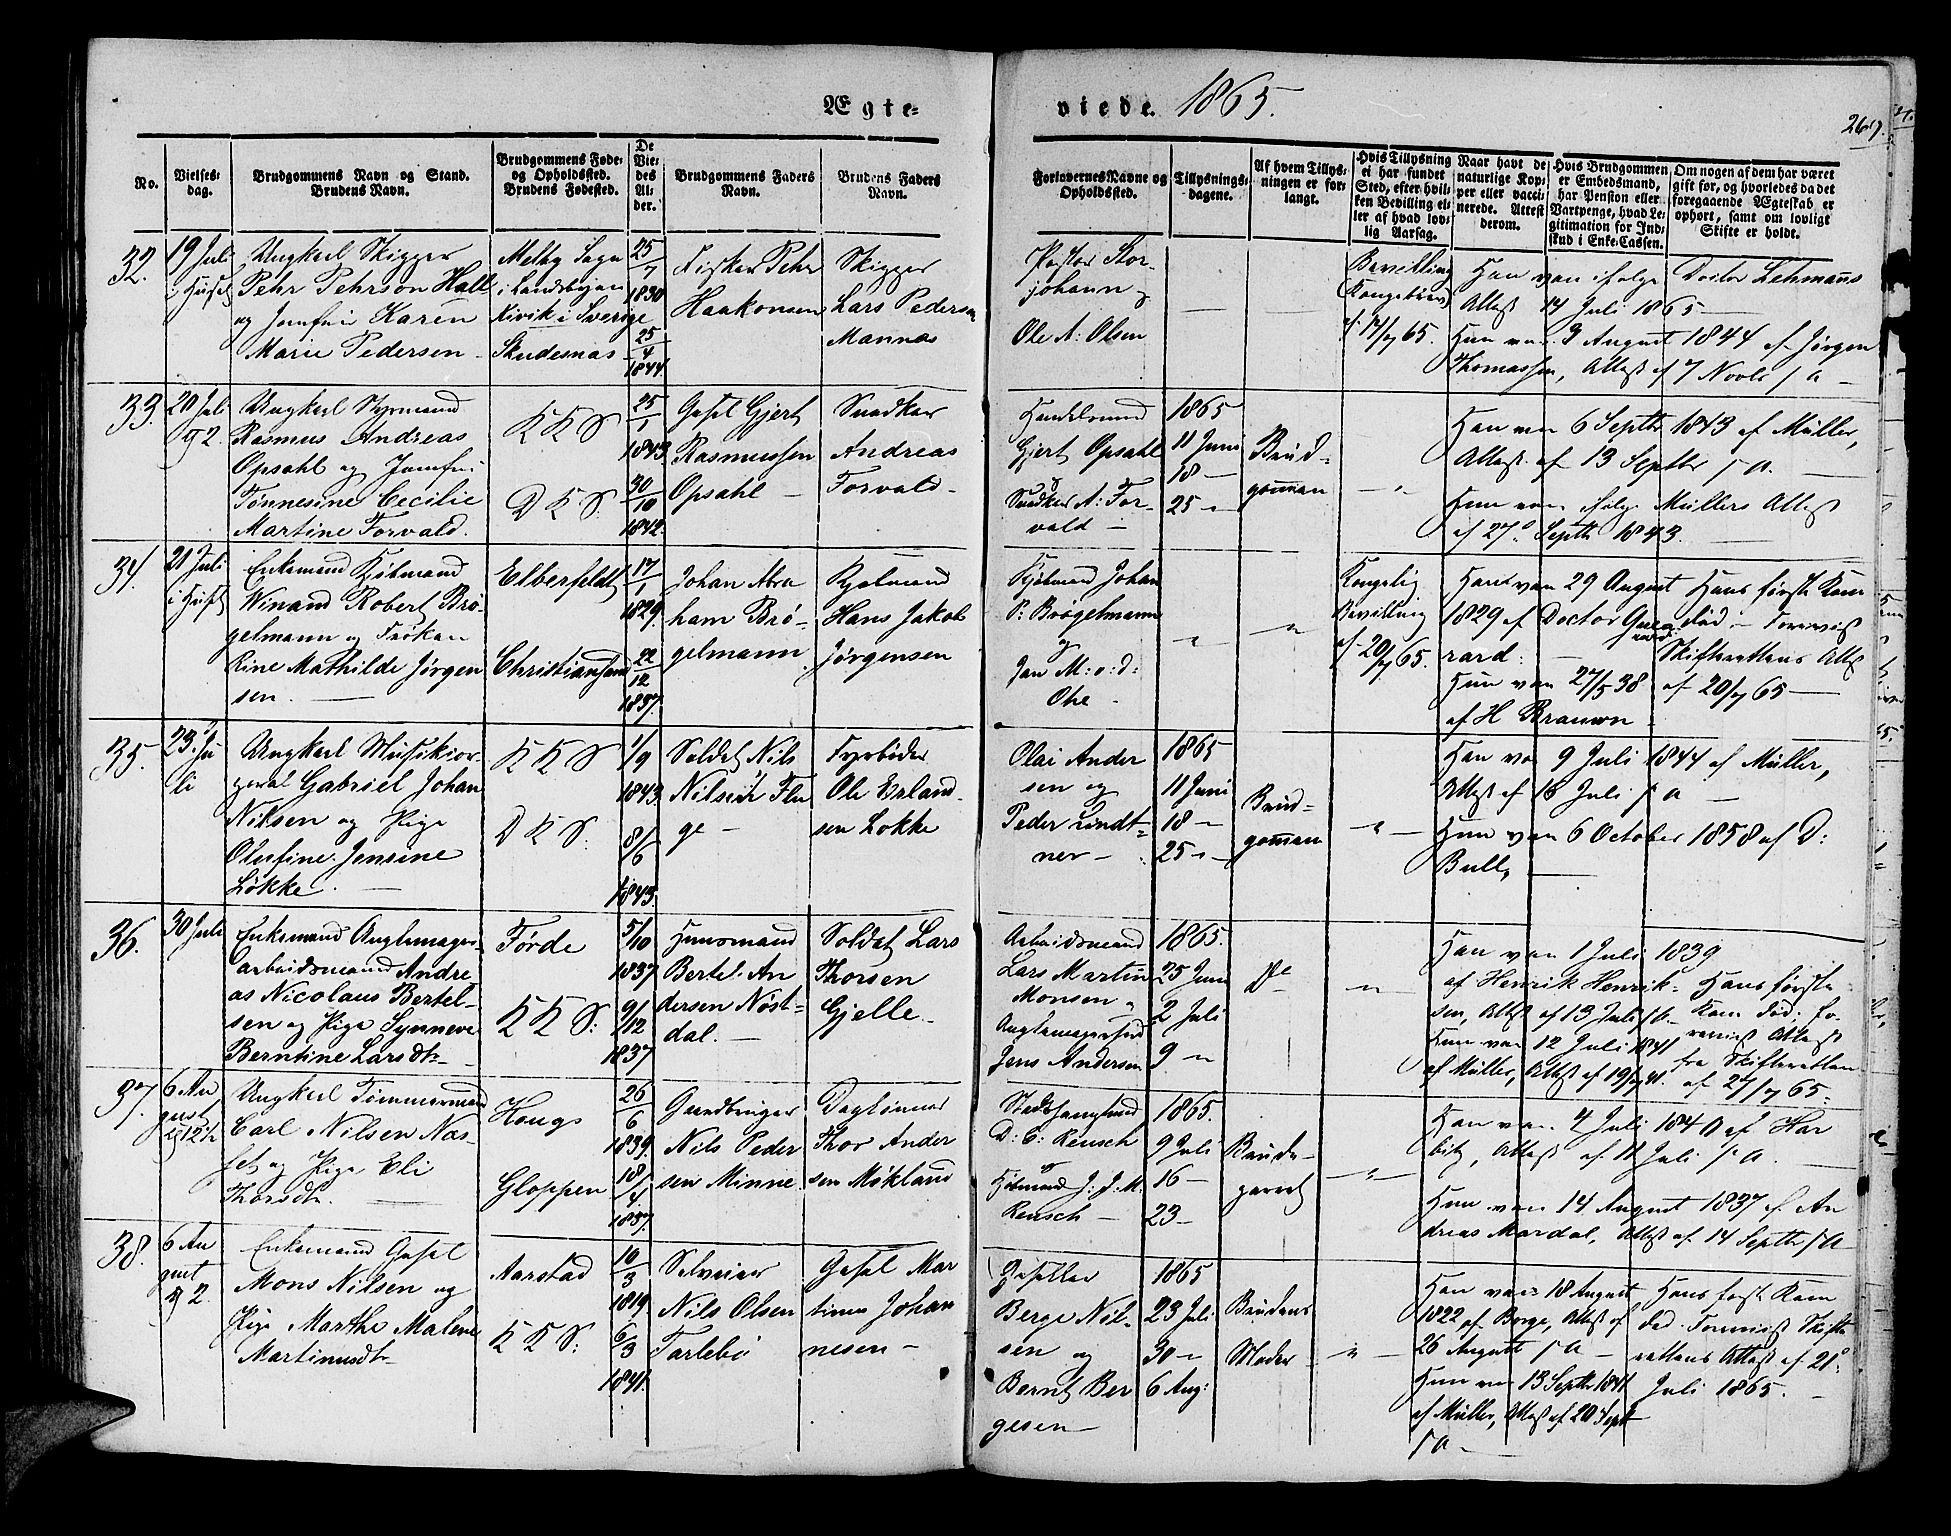 Ægte-
viede. 1865.
No.
Vielses-
dag.
Brudgommens Navn og Stand.
Brudens Navn.
Brudgommens Føde-
og Opholdssted.
Brudens Fødested.
De
Vie-
des
Al-
der.
Brudgommens Faders
Navn.
Brudens Faders
Navn.
Forlovernes Navne og
Opholdssted.
Tillysnings-
dagene.
Af hvem Tillys-
ningen er for-
langt.
Hvis Tillysning
ei har fundet
Sted, efter hvil-
ken Bevilling el-
ler af hvad lov-
lig Aarsag.
Naar havt de
naturlige Kop-
per eller vacci-
nerede. Attest
derom.
Hvis Brudgommen
er Embedsmand,
har Pension eller
Vartpenge, hvad Le-
gitimation for Ind-
skud i Enke-Cassen.
Om nogen af dem har været
gift før, og hvorledes da det
foregaaende Ægteskab er
ophørt, samt om lovligt
Skifte er holdt.
32.
19 Juli
i Huset
Ungkarl Skipper
Pehr Pehrson Hall
og Jomfru Karen
Marie Pedersen
Melby Sogn
i Landsbyen
Kivik i Sverige
Skudesnæs
25/7
1830
25/4
1844.
Fisker Pehr
Haakonsen
Skipper
Lars Pedersen
Mannes
Pastor Stor-
johann og
Ole A. Olsen
Bevilling
(Kongebrev)
af 14/7 65.
Han vac. ifølge Doctor Lehmanns
Attest 14 Juli 1865
Hun vac. 9 August 1844 af Jørgen
Thomassen, Attest af 7 Novbr s. A.
33.
20 Juli
Ungkarl Styrmand
Rasmus Andreas
Opsahl og Jomfru
Tønnesine Cecilie
Martine Torvald.
K K S
D K S.
25/1
1843.
30/10
1842.
Gjert
Rasmussen
Opsahl
Snedker
Andreas
Torvald
Handelsmand
Gjert Opsahl
og
Snedker A. Tor-
vald
1865
11 Juni
18 -
25 -
Brud-
gommen
Han vac. 6 Septbr 1843 af Müller,
Attest af 13 Septbr s A.
Hun vac. ifølge Müllers Attest
af 27de Septbr 1843.
34.
21 Juli
i Huset
Enkemand Kjøbmand
Winand Robert Brö-
gelmann og Frøken
Rine Mathilde Jørgen
sen.
Elberfeldt
Christiansand
17/1
1829.
22/12
1837.
Johan Abra
ham Brö-
gelmann.
Kjøbmand
Hans Jakob
Jørgensen
Kjøbmand Johan
P. Brögelmann
og
Jan M. v. d.
Ohe
Kongelig
Bevilling
af 20/7 65.
Han vac 29 August
1829 af Doctor
rard.
Hun vac 27/5 38
af H Braunn
Hans første Kone
død - Forevist
Skifterettens Attest
af 20/7 65
35.
23. Ju
li
Ungkarl Musikkor-
poral Gabriel Johan
Nilsen og Pige
Olufine Jensine
Løkke.
K K S
D K S.
1/9
1843.
8/6
1843.
Soldat Nils
Nilsen Flu
ge
Fyrbøder
Ole Erland-
sen Løkke
Olai Ander
sen og
Peder Lindt-
ner
1865
11 Juni
18 -
25 -
Brud-
gommen
Han vac 9 Juli 1844 af Müller,
Attest af 16 Juli s A
Hun vac 6 October 1858 af D:
Bull,
36.
30 Juli
Enkemand Anglemager-
arbeidsmand Andre
as Nicolaus Bertel-
sen og Pige Synneve
Berntine Larsdtr
Førde
K K S:
5/10
1837.
9/12
1837.
Huusmand
Bertel An
dersen Nøst-
dal.
Soldat Lars
Thorsen
Gjelle
Arbeidsmand
Lars Martin
Monsen og
Anglemagersvend
Jens Andersen
1865.
25 Juni
2 Juli
9 -
Do
Han vac 1 Juli 1839
af Henrik Henrik-
sen, Attest af 13 Juli s A.
Hun vac 12 Juli 1841
af Müller, Attest af 19/7 41.
Hans første
Kone død; fo-
revist Attest
fra Skifteretten
af 27/7 65.
37.
6 Au
gust
Ungkarl Tømmermand
Carl Nilsen Næs-
set og Pige Eli
Thorsdtr
Hougs
Gloppen
26/6
1839.
18/4
1837.
Gaardbruger
Nils Peder
sen Minne
Daglønner
Thor Ander
sen Møkland
D: C: Reusch
og
Kjøbmand J: J. M.
Reusch
1865.
9 Juli
16 -
23 -
Brude-
parret
Han vac. 4 Juli 1840 af Har
bitz, Attest af 11 Juli s A.
Hun vac 14 August 1837 af An
dreas Mardal, Attest af 14 Septbr s A
38.
6 Au
gust
Enkemand
Mons Nilsen og
Pige Marthe Malene
Martinusdtr
Aarstad
K K S:
10/3
1819.
6/3
1841.
Selveier
Nils Olsen
Tarlebø
Mar
tinus Johan
nesen
Berge Nil-
sen og
Bernt Ber
gesen
1865
23 Juli
30 -
6 Aug:
Brudens
Moder
Han vac 18 August
1822 af Borge, Attest af
26 August s A
Hun vac 13 Septbr 1841
af Müller, Attest af 20 Septbr
s A
Hans første Kone
død. Forevist Skifte
rettens Attest af 21de
Juli 1865.